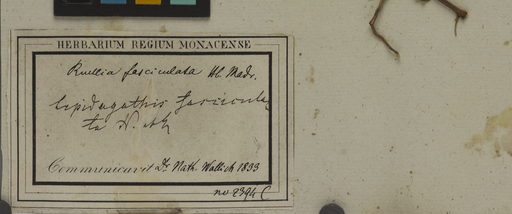 HERBARIUM REGIUM MONACENSE
Ruellia fasciculata Hb. Madr.
Lepidagathis fascicula
ta N. ab E.
Communicavit Dr. Nath. Wallich 1833
no 2394 C